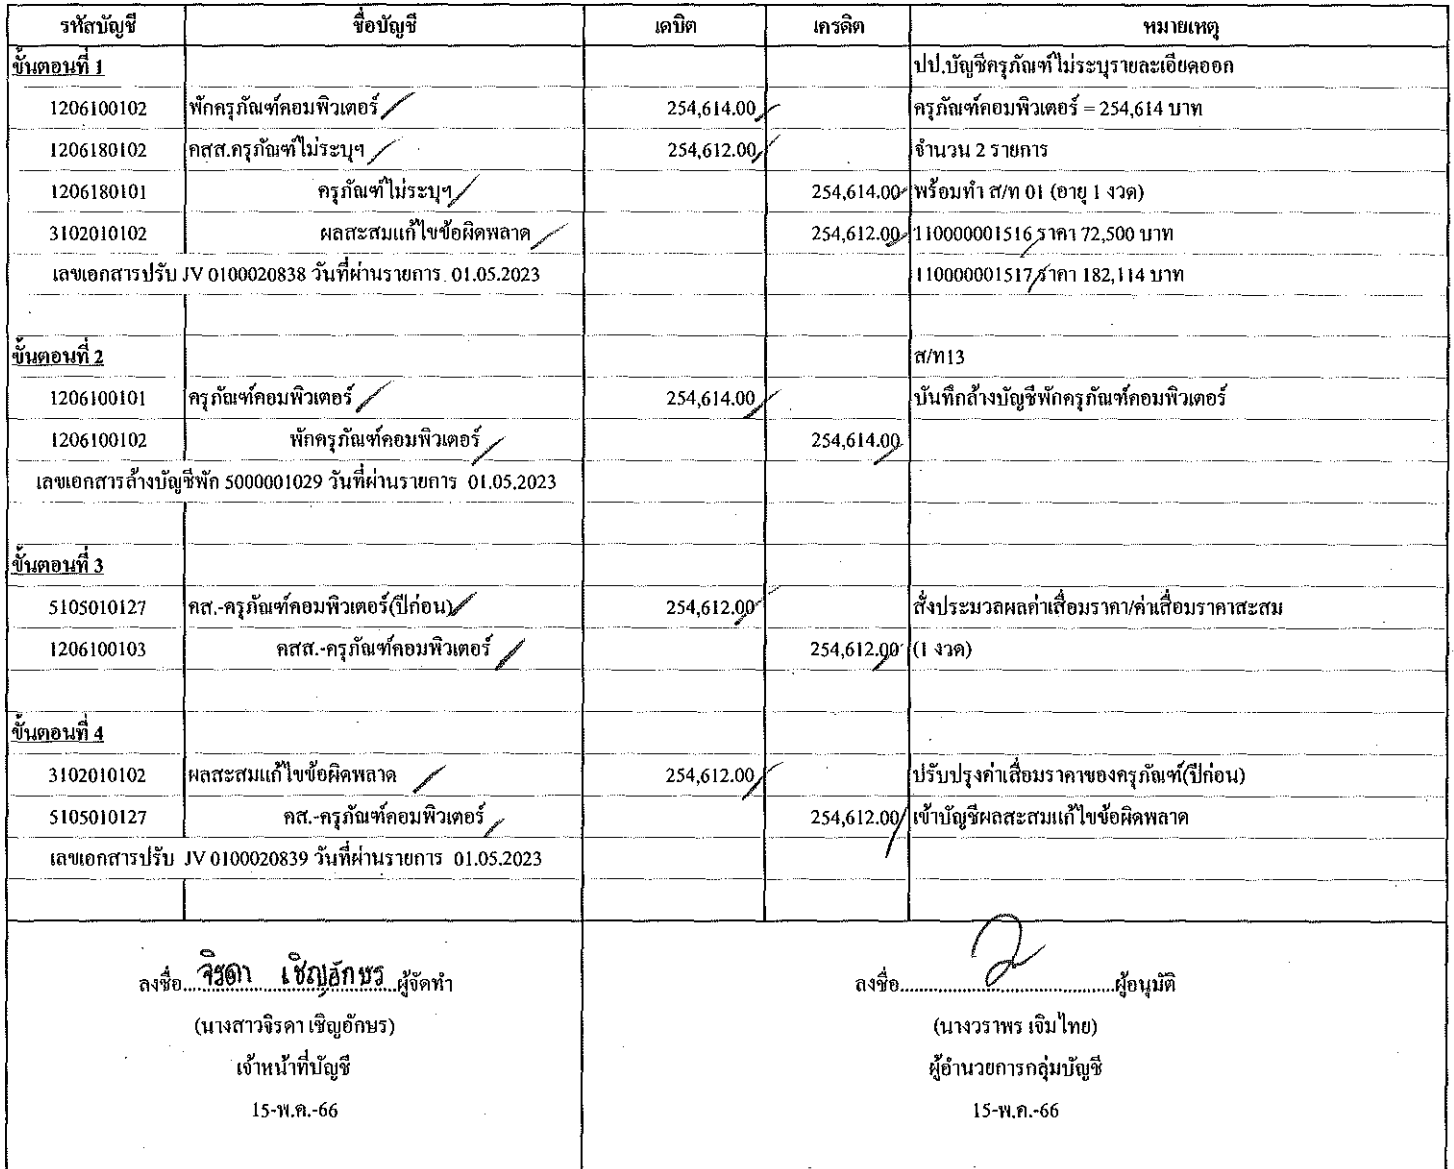 รหัสบัญชี ชื่อบัญชี เดบิต เครดิต หมายเหตุ
ขั้นตอนที่ 1 ปป.บัญชีครุภัณฑ์ไม่ระบุรายละเอียดออก
1206100102 พักครุภัณฑ์คอมพิวเตอร์ 254,614.00 ครุภัณฑ์คอมพิวเตอร์ = 254,614 บาท
1206180102 คสส.ครุภัณฑ์ไม่ระบุฯ 254,612.00 จำนวน 2 รายการ
1206180101 ครุภัณฑ์ไม่ระบุฯ 254,614.00 พร้อมทำ ส/ท 01 (อายุ 1 งวด)
3102010102 ผลสะสมแก้ไขข้อผิดพลาด 254,612.00 110000001516 ราคา 72,500 บาท
เลขเอกสารปรับ JV 0100020838 วันที่ผ่านรายการ 01.05.2023 110000001517 ราคา 182,114 บาท
ขั้นตอนที่ 2 ส/ท13
1206100101 ครุภัณฑ์คอมพิวเตอร์ 254,614.00 บันทึกล้างบัญชีพักครุภัณฑ์คอมพิวเตอร์
1206100102 พักครุภัณฑ์คอมพิวเตอร์ 254,614.00
เลขเอกสารล้างบัญชีพัก 5000001029 วันที่ผ่านรายการ 01.05.2023
ขั้นตอนที่ 3
5105010127 คส.-ครุภัณฑ์คอมพิวเตอร์(ปีก่อน) 254,612.00 สั่งประมวลผลค่าเสื่อมราคา/ค่าเสื่อมราคาสะสม
1206100103 คสส.-ครุภัณฑ์คอมพิวเตอร์ 254,612.00 (1 งวด)
ขั้นตอนที่ 4
3102010102 ผลสะสมแก้ไขข้อผิดพลาด 254,612.00 ปรับปรุงค่าเสื่อมราคาของครุภัณฑ์(ปีก่อน)
5105010127 คส.-ครุภัณฑ์คอมพิวเตอร์ 254,612.00 เข้าบัญชีผลสะสมแก้ไขข้อผิดพลาด
เลขเอกสารปรับ JV 0100020839 วันที่ผ่านรายการ 01.05.2023
ลงชื่อ...จิรดา เชิญอักษร...ผู้จัดทำ ลงชื่อ...ผู้อนุมัติ
(นางสาวจิรดา เชิญอักษร) (นางวราพร เจิมไทย)
เจ้าหน้าที่บัญชี ผู้อำนวยการกลุ่มบัญชี
15-พ.ค.-66 15-พ.ค.-66